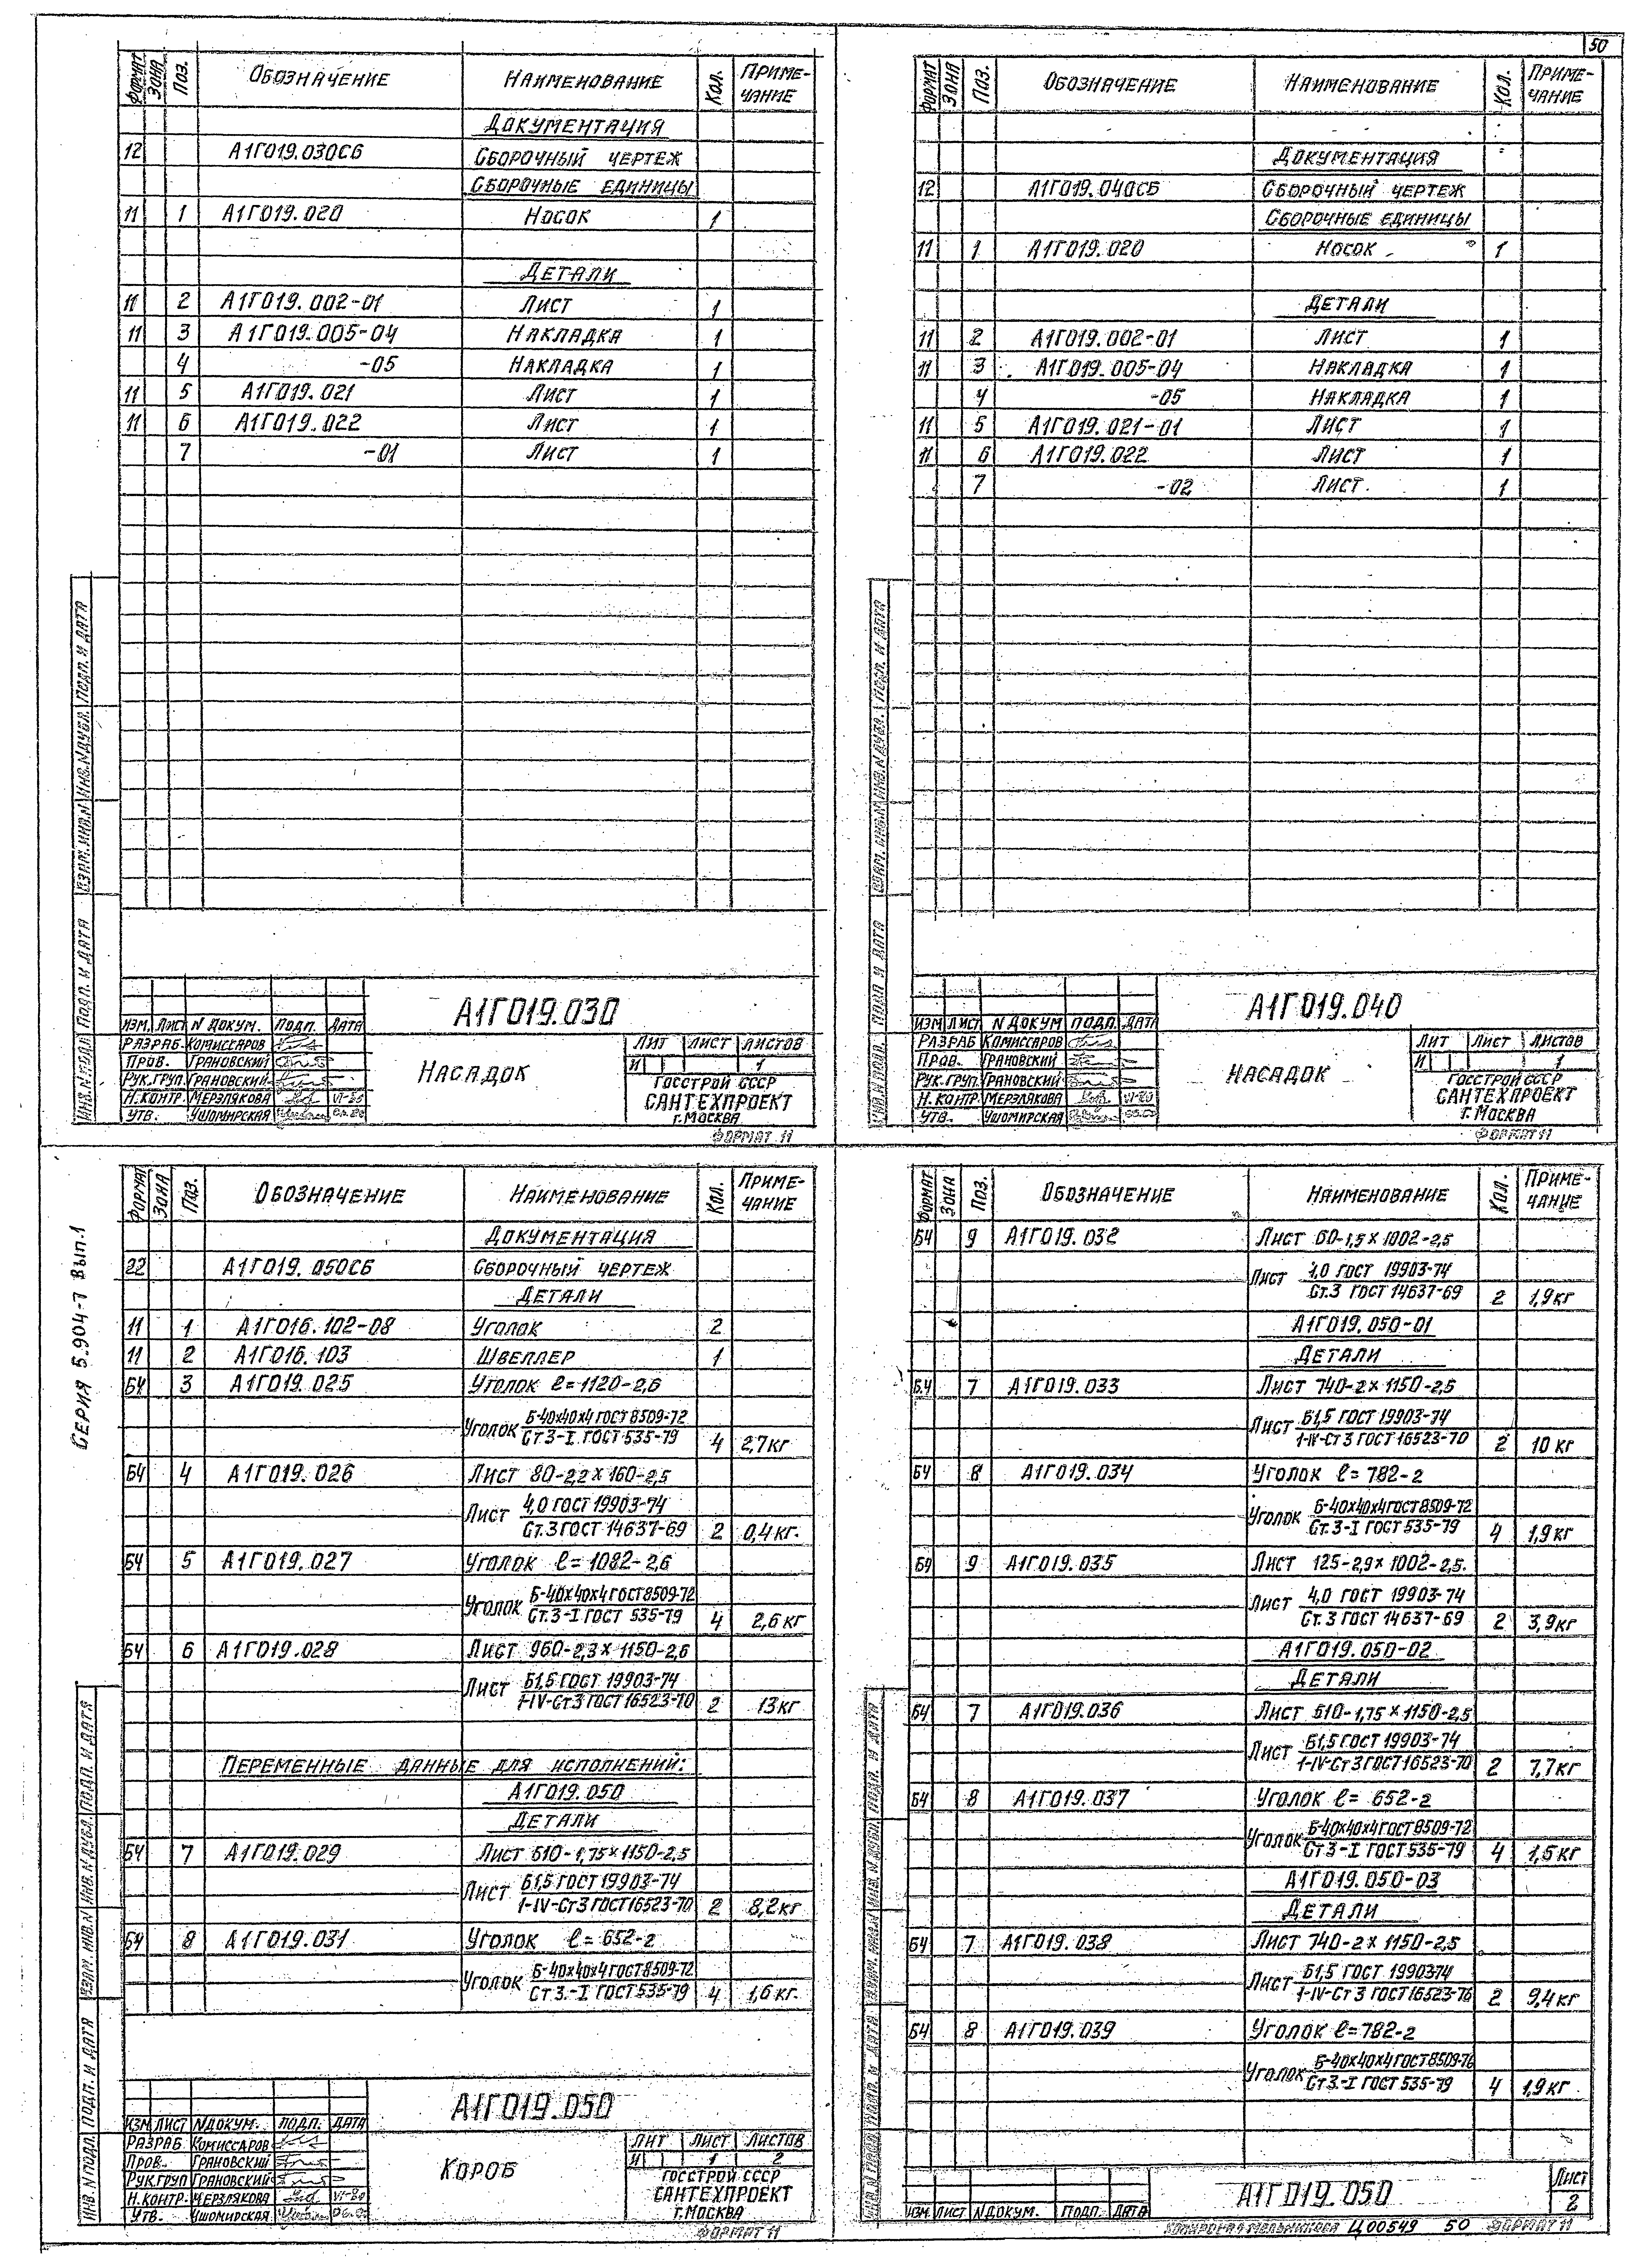 50
ФОРМАТ ЗОНА ПОЗ. ОБОЗНАЧЕНИЕ НАИМЕНОВАНИЕ КОЛ. ПРИМЕ-
ЧАНИЕ
ДОКУМЕНТАЦИЯ
12 А1Г019.030СБ СБОРОЧНЫЙ ЧЕРТЕЖ
СБОРОЧНЫЕ ЕДИНИЦЫ
11 1 А1Г019.020 НОСОК 1
ДЕТАЛИ
11 2 А1Г019.002-01 ЛИСТ 1
11 3 А1Г019.005-04 НАКЛАДКА 1
4 -05 НАКЛАДКА 1
11 5 А1Г019.021 ЛИСТ 1
11 6 А1Г019.022 ЛИСТ 1
7 -01 ЛИСТ 1
ИНВ.N ПОДЛ. ПОДП. И ДАТА ВЗАМ.ИНВ.N ИНВ.N ДУБЛ. ПОДП. И ДАТА
А1Г019.030
ИЗМ. ЛИСТ N ДОКУМ. ПОДП. ДАТА
РАЗРАБ. КОМИССАРОВ
ПРОВ. ГРАНОВСКИЙ
РУК.ГРУП. ГРАНОВСКИЙ
Н.КОНТР. МЕРЗЛЯКОВА VI-80
УТВ. УШОМИРСКАЯ
НАСАДОК
ЛИТ ЛИСТ ЛИСТОВ
И 1
ГОССТРОЙ СССР
САНТЕХПРОЕКТ
г.МОСКВА
ФОРМАТ 11
ФОРМАТ ЗОНА ПОЗ. ОБОЗНАЧЕНИЕ НАИМЕНОВАНИЕ КОЛ. ПРИМЕ-
ЧАНИЕ
ДОКУМЕНТАЦИЯ
12 А1Г019.040СБ СБОРОЧНЫЙ ЧЕРТЕЖ
СБОРОЧНЫЕ ЕДИНИЦЫ
11 1 А1Г019.020 НОСОК 1
ДЕТАЛИ
11 2 А1Г019.002-01 ЛИСТ 1
11 3 А1Г019.005-04 НАКЛАДКА 1
4 -05 НАКЛАДКА 1
11 5 А1Г019.021-01 ЛИСТ 1
11 6 А1Г019.022 ЛИСТ 1
7 -02 ЛИСТ 1
ИНВ.N ПОДЛ. ПОДП. И ДАТА ВЗАМ. ИНВ.N ИНВ.N ДУБЛ. ПОДП. И ДАТА
А1Г019.040
ИЗМ. ЛИСТ N ДОКУМ ПОДП. ДАТА
РАЗРАБ КОМИССАРОВ
ПРОВ. ГРАНОВСКИЙ
РУК.ГРУП. ГРАНОВСКИЙ
Н.КОНТР. МЕРЗЛЯКОВА VI-80
УТВ. УШОМИРСКАЯ
НАСАДОК
ЛИТ ЛИСТ ЛИСТОВ
И 1
ГОССТРОЙ СССР
САНТЕХПРОЕКТ
г.МОСКВА
ФОРМАТ 11
СЕРИЯ 5.904-7 ВЫП.1
ФОРМАТ ЗОНА ПОЗ. ОБОЗНАЧЕНИЕ НАИМЕНОВАНИЕ КОЛ. ПРИМЕ-
ЧАНИЕ
ДОКУМЕНТАЦИЯ
22 А1Г019.050СБ СБОРОЧНЫЙ ЧЕРТЕЖ
ДЕТАЛИ
11 1 А1Г016.102-08 УГОЛОК 2
11 2 А1Г016.103 ШВЕЛЛЕР 1
БЧ 3 А1Г019.025 УГОЛОК ℓ=1120-2,6
УГОЛОК Б-40х40х4 ГОСТ 8509-72
Ст.3-I ГОСТ 535-79 4 2,7кг
БЧ 4 А1Г019.026 ЛИСТ 80-2,2 х 160-2,5
ЛИСТ 4,0 ГОСТ 19903-74
Ст.3 ГОСТ 14637-69 2 0,4кг.
БЧ 5 А1Г019.027 УГОЛОК ℓ=1082-2,6
УГОЛОК Б-40х40х4 ГОСТ 8509-72
Ст.3-I ГОСТ 535-79 4 2,6кг
БЧ 6 А1Г019.028 ЛИСТ 960-2,3 х 1150-2,6
ЛИСТ Б1,5 ГОСТ 19903-74
1-IV-Ст3 ГОСТ 16523-70 2 13кг
ПЕРЕМЕННЫЕ ДАННЫЕ ДЛЯ ИСПОЛНЕНИЙ:
А1Г019.050
ДЕТАЛИ
БЧ 7 А1Г019.029 ЛИСТ 610-1,75 х 1150-2,5
ЛИСТ Б1,5 ГОСТ 19903-74
1-IV-Ст3 ГОСТ 16523-70 2 8,2кг
БЧ 8 А1Г019.031 УГОЛОК ℓ=652-2
УГОЛОК Б-40х40х4 ГОСТ 8509-72
Ст.3-I ГОСТ 535-79 4 1,6кг.
ИНВ. N ПОДЛ. ПОДП. И ДАТА ВЗАМ. ИНВ.N ИНВ.N ДУБЛ. ПОДП. И ДАТА
А1Г019.050
ИЗМ ЛИСТ N ДОКУМ. ПОДП. ДАТА
РАЗРАБ КОМИССАРОВ
ПРОВ. ГРАНОВСКИЙ
РУК.ГРУП ГРАНОВСКИЙ
Н.КОНТР. МЕРЗЛЯКОВА VI-80
УТВ. УШОМИРСКАЯ
КОРОБ
ЛИТ ЛИСТ ЛИСТОВ
И 1 2
ГОССТРОЙ СССР
САНТЕХПРОЕКТ
г.МОСКВА
ФОРМАТ 11
ФОРМАТ ЗОНА ПОЗ. ОБОЗНАЧЕНИЕ НАИМЕНОВАНИЕ КОЛ. ПРИМЕ-
ЧАНИЕ
БЧ 9 А1Г019.032 ЛИСТ 60-1,5 х 1002-2,5
ЛИСТ 1,0 ГОСТ 19903-74
Ст.3 ГОСТ 14637-69 2 1,9кг
А1Г019.050-01
ДЕТАЛИ
БЧ 7 А1Г019.033 ЛИСТ 740-2 х 1150-2,5
ЛИСТ Б1,5 ГОСТ 19903-74
1-IV-Ст3 ГОСТ 16523-70 2 10 кг
БЧ 8 А1Г019.034 УГОЛОК ℓ=782-2
УГОЛОК Б-40х40х4 ГОСТ 8509-72
Ст.3-I ГОСТ 535-79 4 1,9кг
БЧ 9 А1Г019.035 ЛИСТ 125-2,9 х 1002-2,5.
ЛИСТ 4,0 ГОСТ 19903-74
Ст.3 ГОСТ 14637-69 2 3,9кг
А1Г019.050-02
ДЕТАЛИ
БЧ 7 А1Г019.036 ЛИСТ 610-1,75 х 1150-2,5
ЛИСТ Б1,5 ГОСТ 19903-74
1-IV-Ст3 ГОСТ 16523-70 2 7,7кг
БЧ 8 А1Г019.037 УГОЛОК ℓ= 652-2
УГОЛОК Б-40х40х4 ГОСТ 8509-72
Ст3-I ГОСТ 535-79 4 1,5кг
А1Г019.050-03
ДЕТАЛИ
БЧ 7 А1Г019.038 ЛИСТ 740-2 х 1150-2,5
ЛИСТ Б1,5 ГОСТ 1990374
1-IV-Ст3 ГОСТ 16523-76 2 9,4кг
БЧ 8 А1Г019.039 УГОЛОК ℓ=782-2
УГОЛОК Б-40х40х4 ГОСТ 8509-76
Ст3.-I ГОСТ 535-79 4 1,9кг
ИЗМ. ЛИСТ N ДОКУМ. ПОДП. ДАТА
А1Г019.050
ЛИСТ
2
Ц00549 50 ФОРМАТ 11